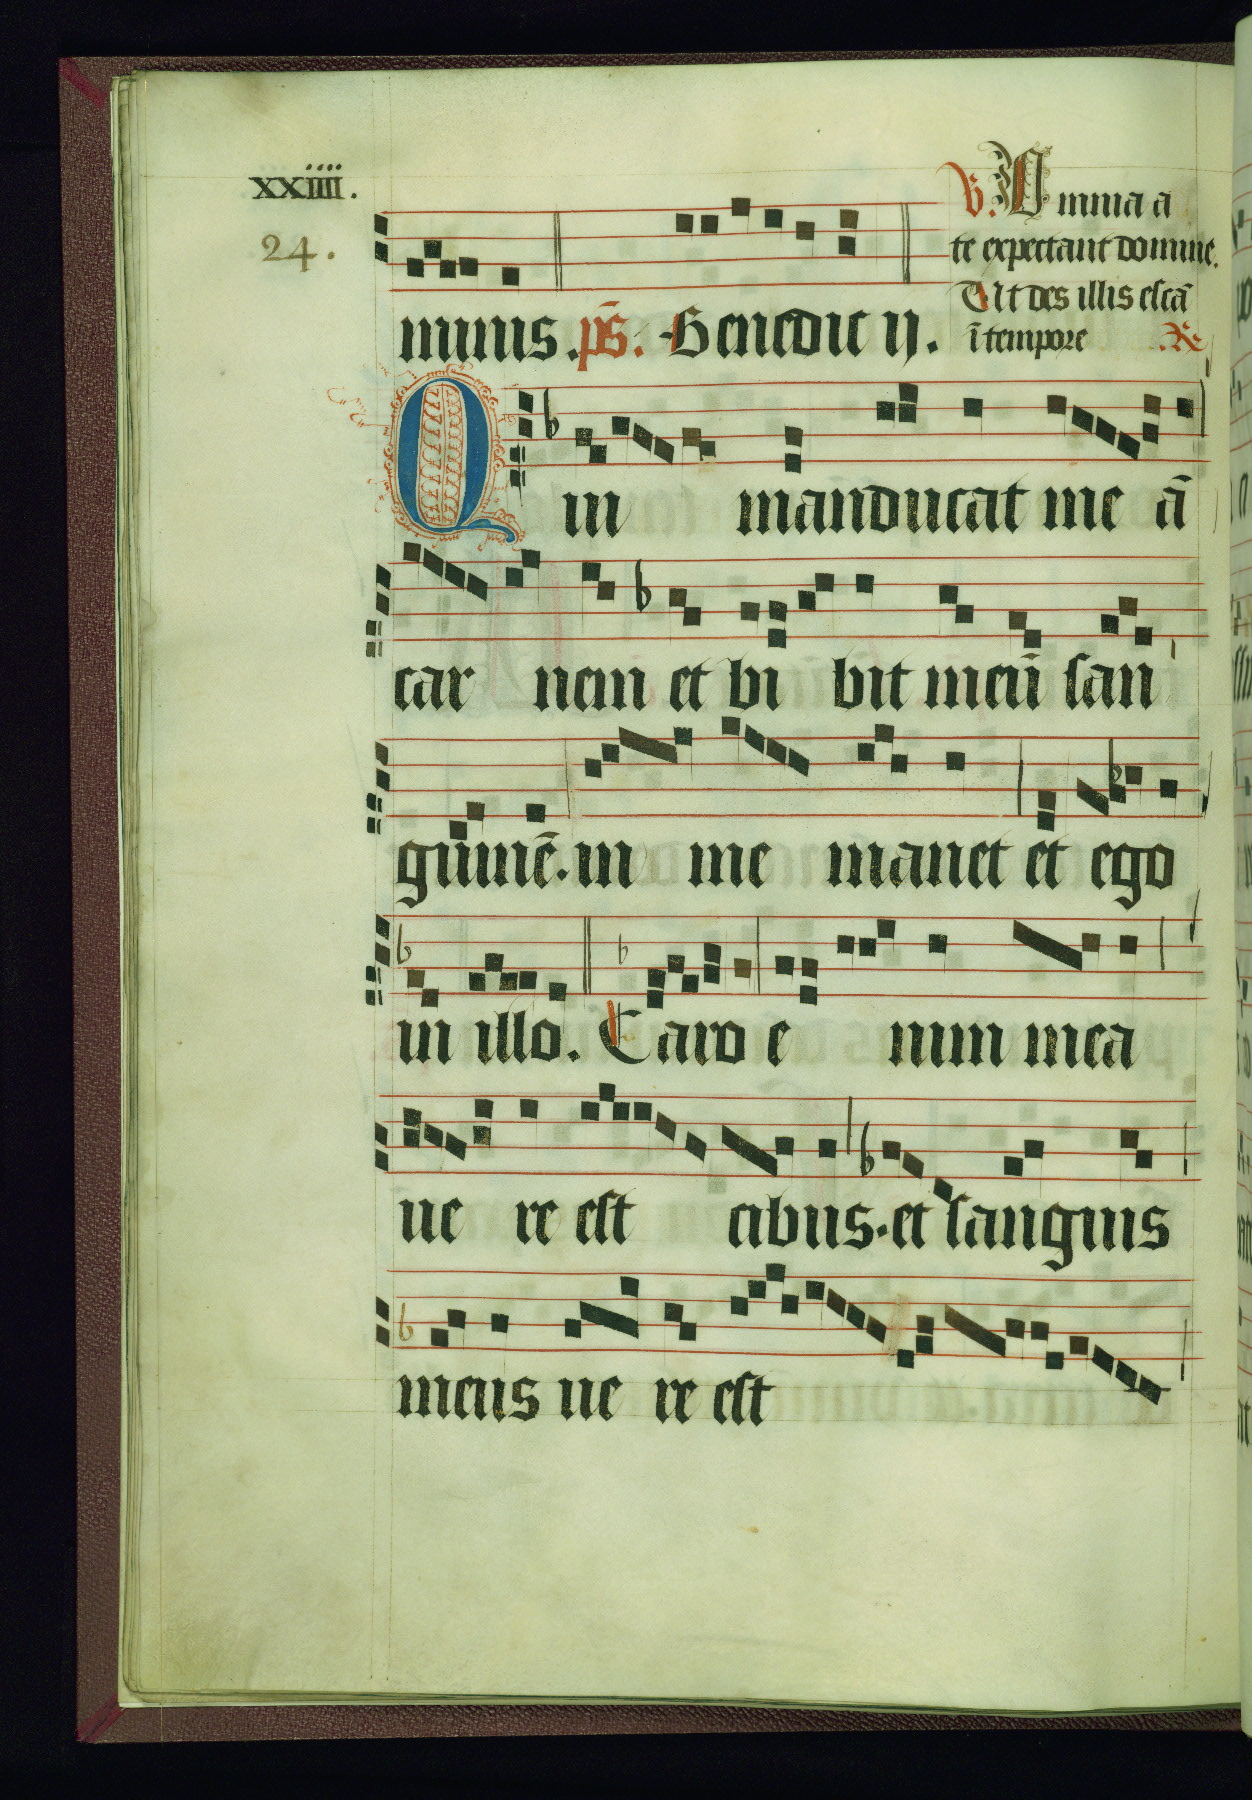 xxiiii.
24.
v̄. Omnia a
te expectant domine.
Ut des illis escā
ī tempore R̄
minis. ps̄. Benedic ij.
Qui manducat meā
car nem et bi bit meū san
guinē. in me manet et ego
in illo. Caro e nim mea
ue re est cibus. et sanguis
meus ue re est